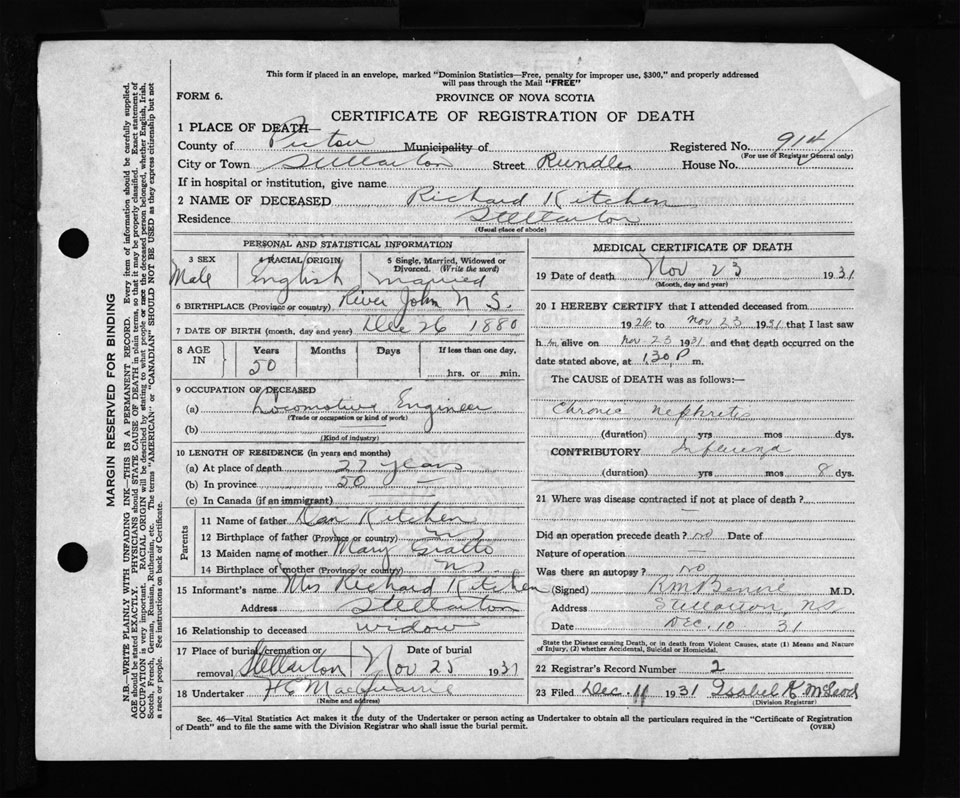 This form if placed in an envelope, marked "Dominion Statistics—Free, penalty for improper use, $300," and properly addressed
will pass through the Mail "FREE"
FORM 6.
PROVINCE OF NOVA SCOTIA
CERTIFICATE OF REGISTRATION OF DEATH
1 PLACE OF DEATH—
County of Pictou Municipality of Registered No. 914
(For use of Registrar General only)
City or Town Stellarton Street Rundle House No.
If in hospital or institution, give name
2 NAME OF DECEASED Richard Kitchen
Residence Stellarton
(Usual place of abode)
PERSONAL AND STATISTICAL INFORMATION
3 SEX 4 RACIAL ORIGIN 5 Single, Married, Widowed or Divorced. (Write the word)
Male English Married
6 BIRTHPLACE (Province or country) River John N S.
7 DATE OF BIRTH (month, day and year) Dec 26 1880
8 AGE IN Years Months Days If less than one day,
50 hrs. or min.
9 OCCUPATION OF DECEASED
(a) Locomotive Engineer
(Trade or occupation or kind of work)
(b)
(Kind of industry)
10 LENGTH OF RESIDENCE (in years and months)
(a) At place of death 27 years
(b) In province 50 —
(c) In Canada (if an immigrant)
Parents
11 Name of father Dan Kitchen
12 Birthplace of father (Province or country)
13 Maiden name of mother Mary Gratto
14 Birthplace of mother (Province or country) N.S.
15 Informant's name Mrs Richard Kitchen
Address Stellarton
16 Relationship to deceased widow
17 Place of burial, cremation or removal Stellarton Date of burial Nov 25 1931
18 Undertaker H E MacQuarrie
(Name and address)
MEDICAL CERTIFICATE OF DEATH
19 Date of death Nov 23 1931
(Month, day and year)
20 I HEREBY CERTIFY that I attended deceased from
1926 to Nov 23 1931 that I last saw
h im alive on Nov 23 1931 and that death occurred on the
date stated above, at 1.30 P m.
The CAUSE of DEATH was as follows:—
Chronic nephritis
(duration) yrs mos dys.
CONTRIBUTORY Influenza
(duration) yrs mos 8 dys.
21 Where was disease contracted if not at place of death? —
Did an operation precede death? no Date of
Nature of operation —
Was there an autopsy? No
(Signed) R M Benvie M.D.
Address Stellarton, N S
Date Dec. 10 31
State the Disease causing Death, or in death from Violent Causes, state (1) Means and Nature
of Injury, (2) whether Accidental, Suicidal or Homicidal.
22 Registrar's Record Number 2
23 Filed Dec. 11 1931 Isabel K McLeod
(Division Registrar)
Sec. 46—Vital Statistics Act makes it the duty of the Undertaker or person acting as Undertaker to obtain all the particulars required in the "Certificate of Registration
of Death" and to file the same with the Division Registrar who shall issue the burial permit. (OVER)
MARGIN RESERVED FOR BINDING
N.B.—WRITE PLAINLY WITH UNFADING INK—THIS IS A PERMANENT RECORD. Every item of information should be carefully supplied.
AGE should be stated EXACTLY. PHYSICIANS should STATE CAUSE OF DEATH in plain terms, so that it may be properly classified. Exact statement of
OCCUPATION is very important. RACIAL ORIGIN will be described by stating to what people or race the deceased person belonged, whether English, Irish,
Scotch, French, German, Russian, Ruthenian, etc. The terms "AMERICAN" or "CANADIAN" SHOULD NOT BE USED as they express citizenship but not
a race or people. See instructions on back of Certificate.